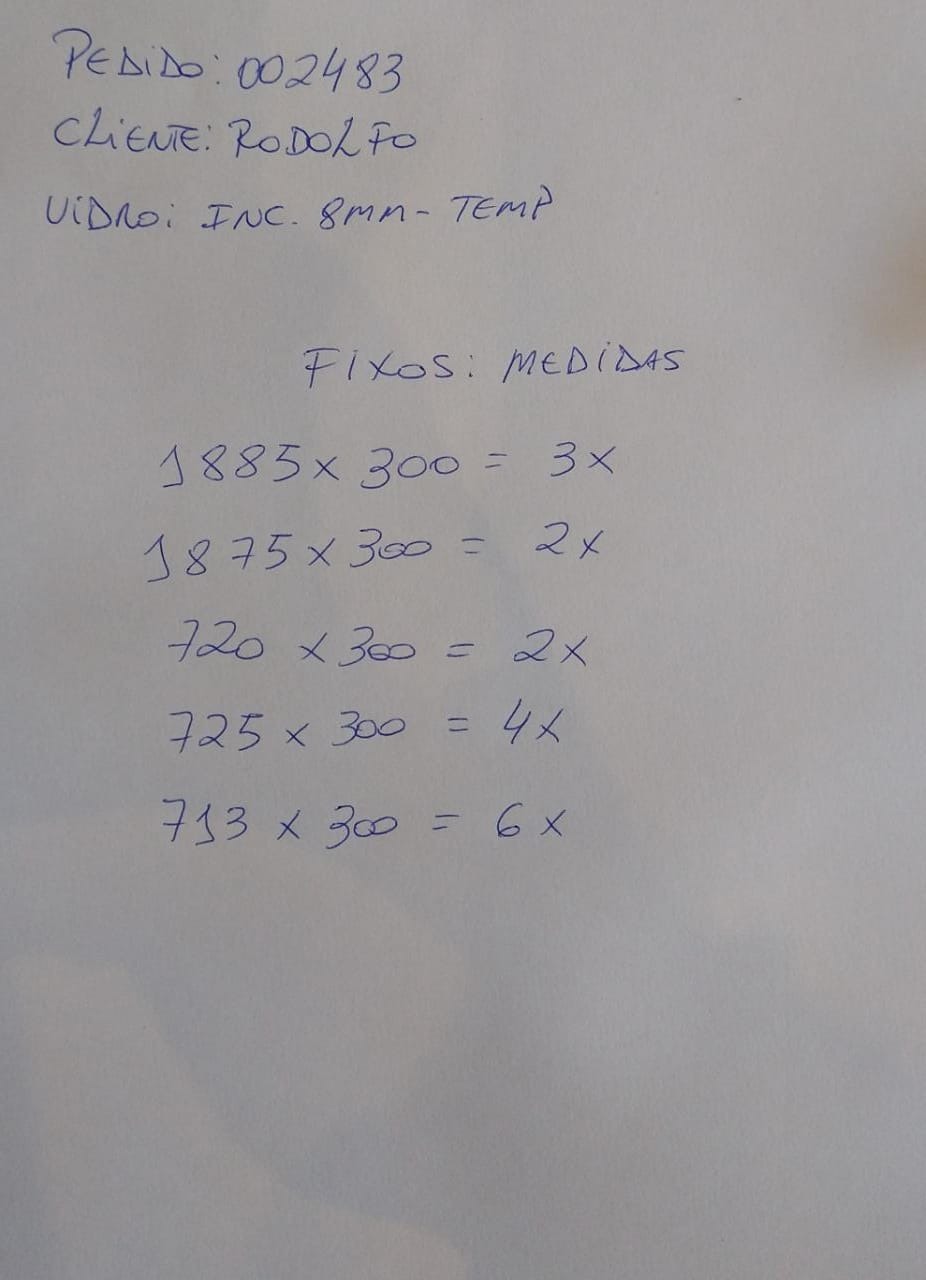 PEDiDO: 002483
CLiENTE: RODOLFO
ViDRO: INC. 8MM - TEMP
FIXOS: MEDiDAS
1885 x 300 = 3x
1875 x 300 = 2x
720 x 300 = 2x
725 x 300 = 4x
713 x 300 = 6x